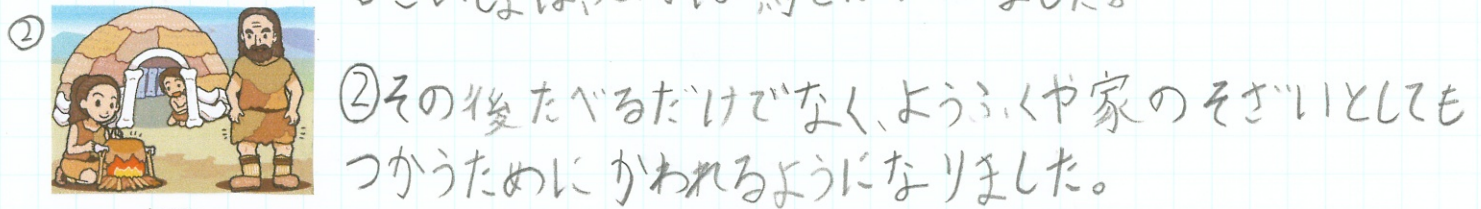 ②
②その後たべるだけでなく、ようふくや家のそざいとしても
つかうためにかわれるようになりました。